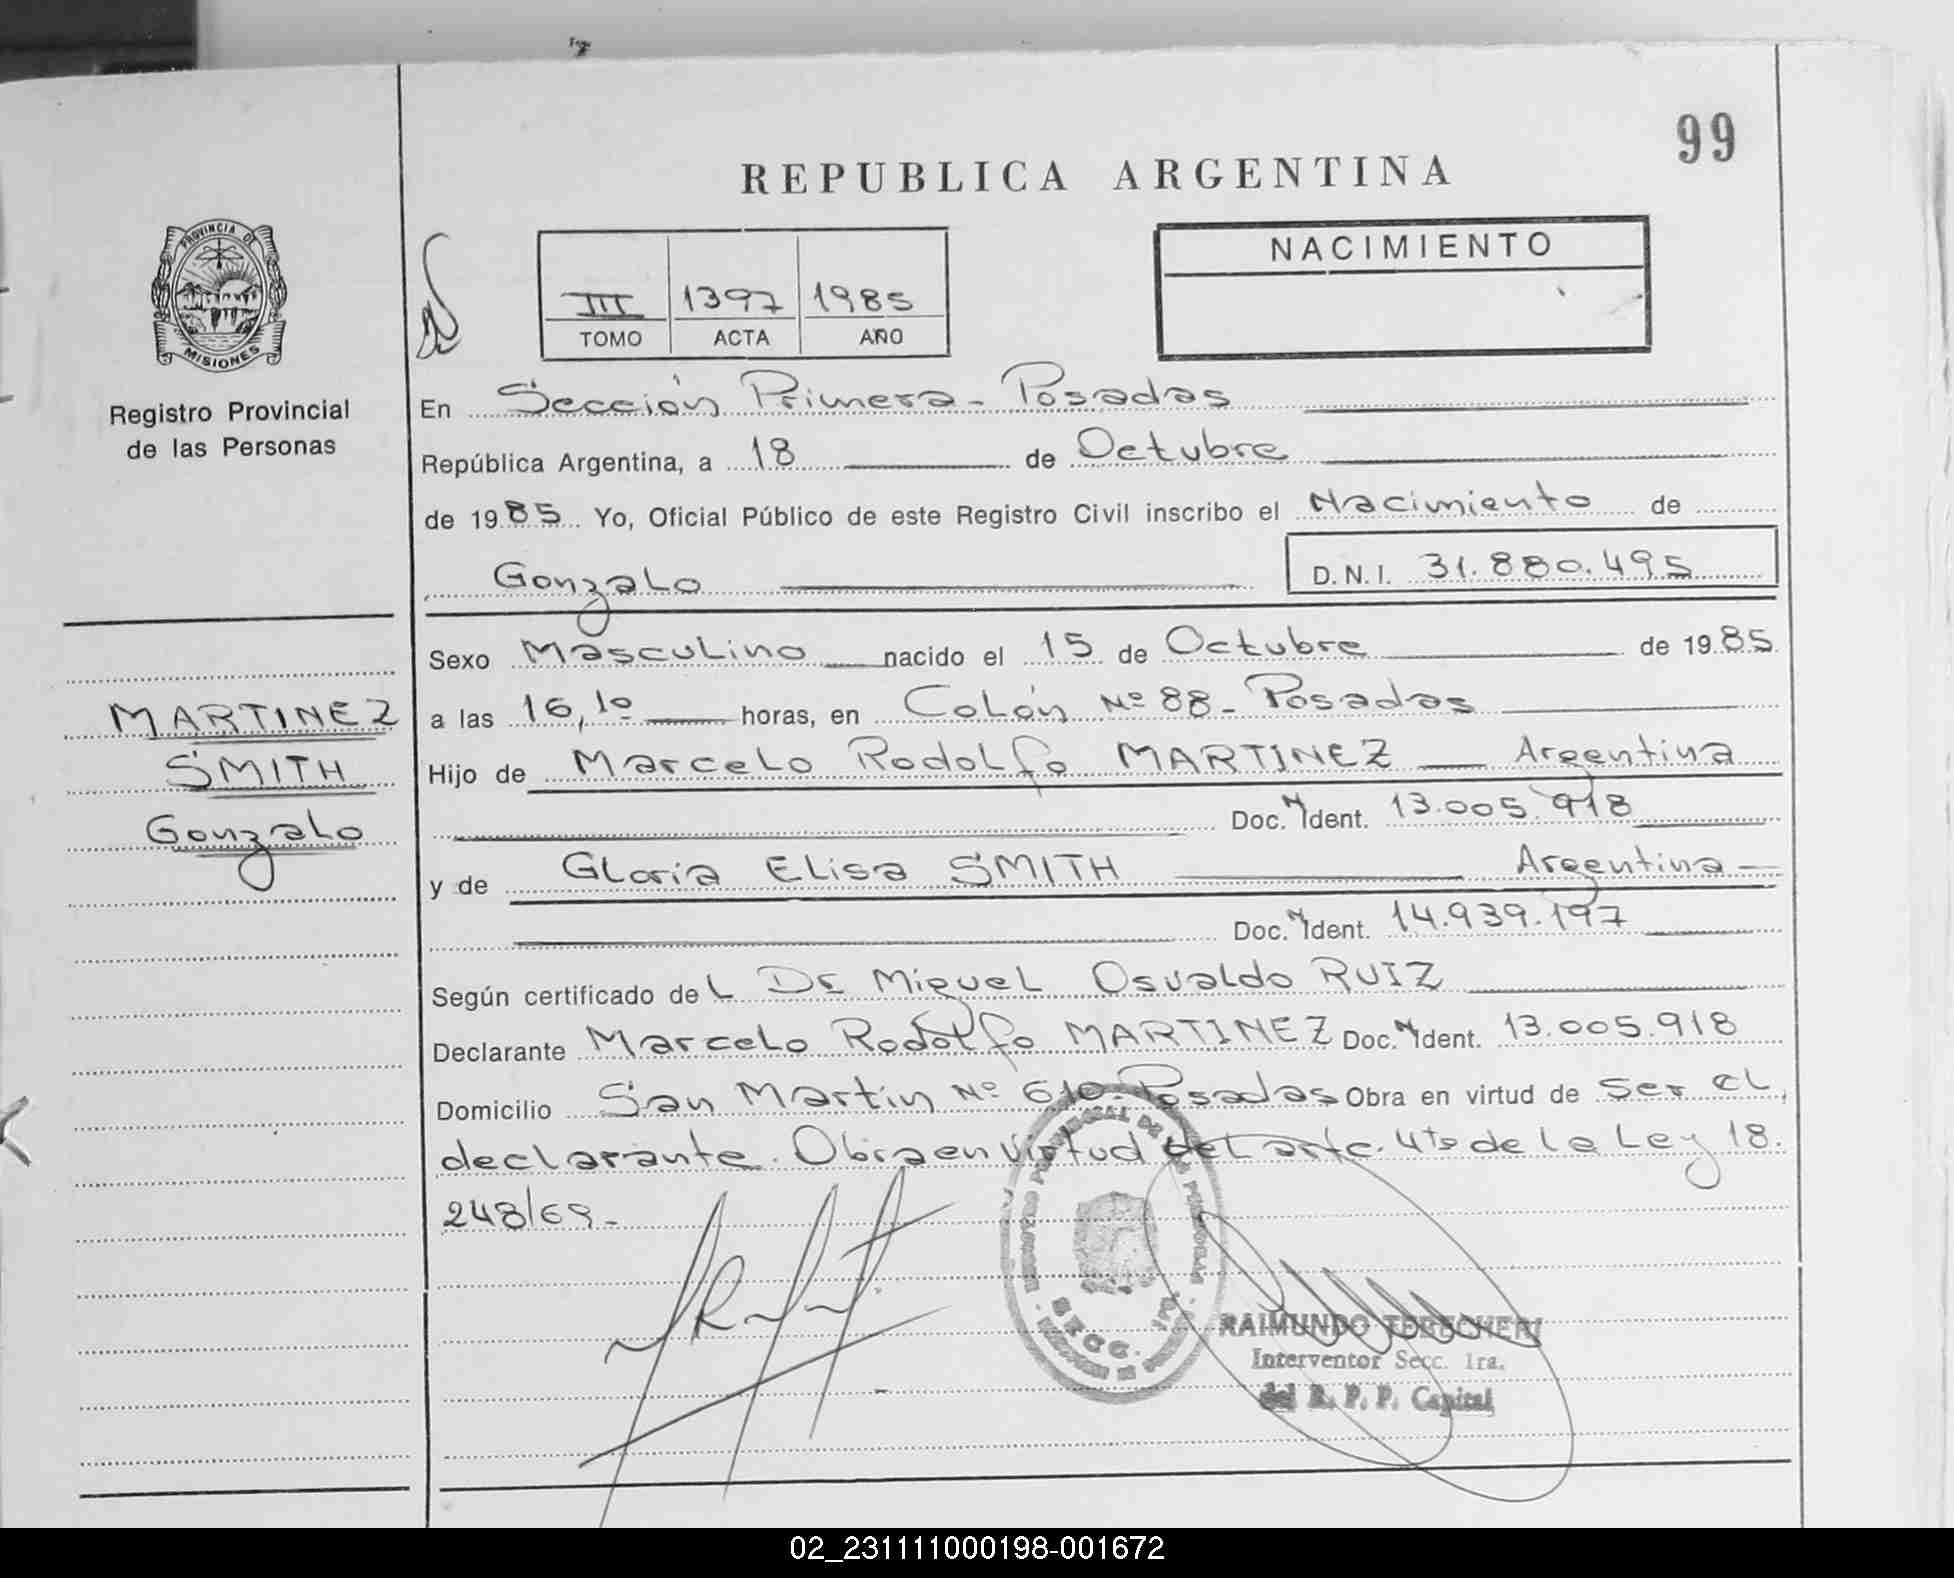 99
REPUBLICA ARGENTINA
PROVINCIA DE
MISIONES
Registro Provincial
de las Personas
III 1397 1985
TOMO ACTA AÑO
NACIMIENTO
En Sección Primera - Posadas
República Argentina, a 18 de Octubre
de 1985 Yo, Oficial Público de este Registro Civil inscribo el Nacimiento de
Gonzalo D.N.I. 31.880.495
Sexo Masculino nacido el 15 de Octubre de 1985
MARTINEZ
SMITH
Gonzalo
a las 16,10 horas, en Colón Nº 88 - Posadas
Hijo de Marcelo Rodolfo MARTINEZ Argentina
Doc. Ident. 13.005.918
y de Gloria Elisa SMITH Argentina
Doc. Ident. 14.939.197
Según certificado del Dr Miguel Osvaldo RUIZ
Declarante Marcelo Rodolfo MARTINEZ Doc. Ident. 13.005.918
Domicilio San Martín Nº 610 - Posadas Obra en virtud de ser el
declarante. Obra en virtud del arto. 4to de la Ley 18.
248/69 -
SECC.
RAIMUNDO
Interventor Secc. 1ra.
del R. P. P. Capital
02_231111000198-001672